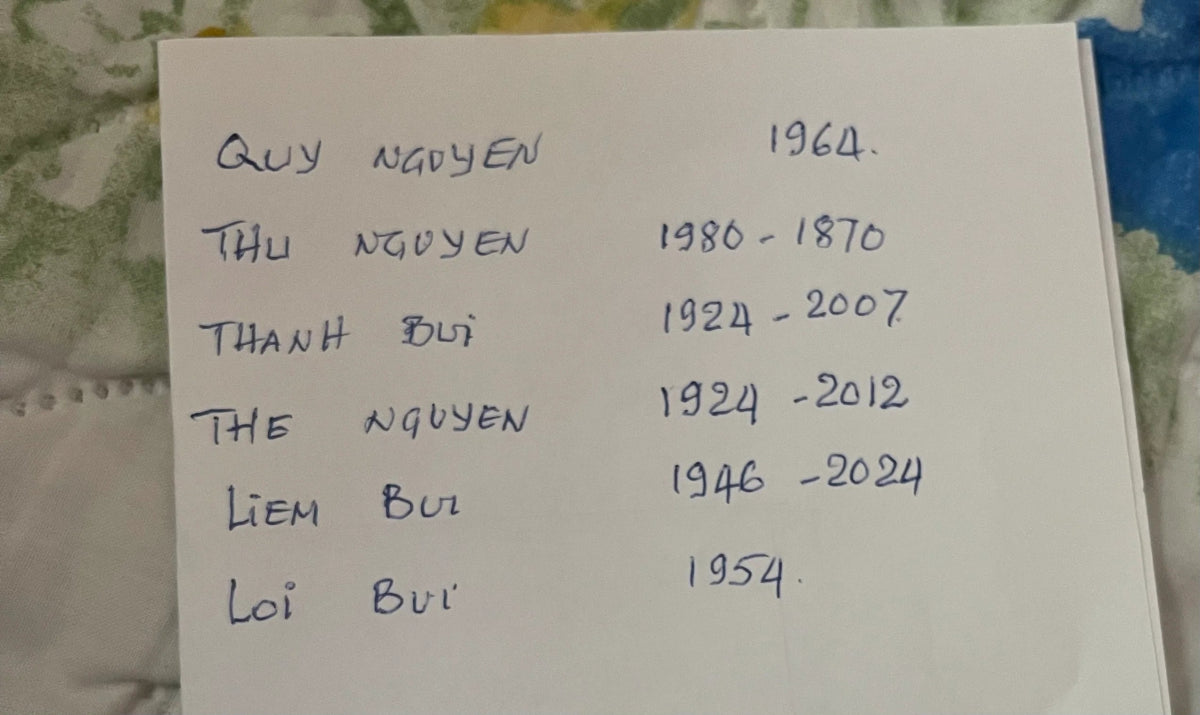 QUY NGUYEN 1964.
THU NGUYEN 1980 - 1870
THANH BUI 1924 - 2007
THE NGUYEN 1924 - 2012
LIEM BUI 1946 - 2024
LOI BUI 1954.